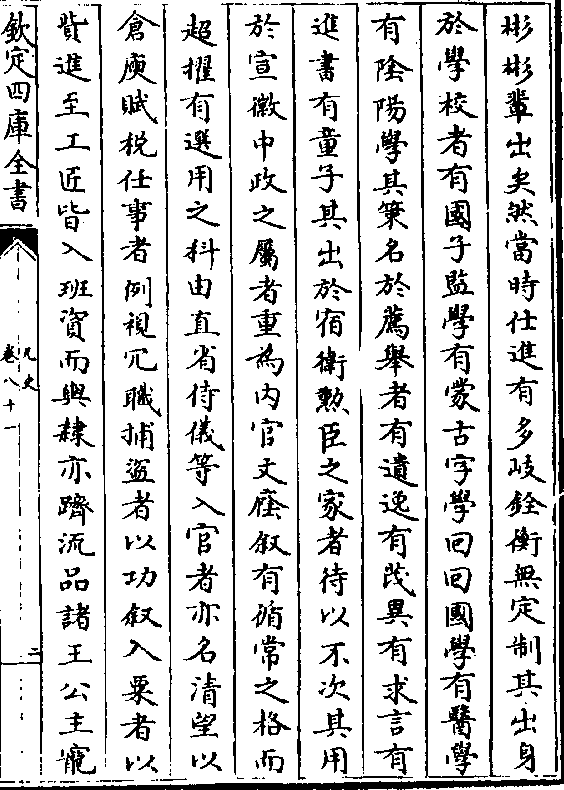 彬彬輩出矣然當時仕進有多歧銓衡無定制其出身
於學校者有國子監學有蒙古字學回回國學有醫學
有陰陽學其策名於薦舉者有遺逸有茂異有求言有
進書有童子其出於宿衛勲臣之家者待以不次其用
於宣徽中政之屬者重為内官又廕叙有循常之格而
超擢有選用之科由直省侍儀等入官者亦名清望以
倉庾賦税任事者例視冗職捕盗者以功叙入粟者以
貲進至工匠皆入班資而輿隸亦躋流品諸王公主寵
欽定四庫全書
元史
卷八十一
二